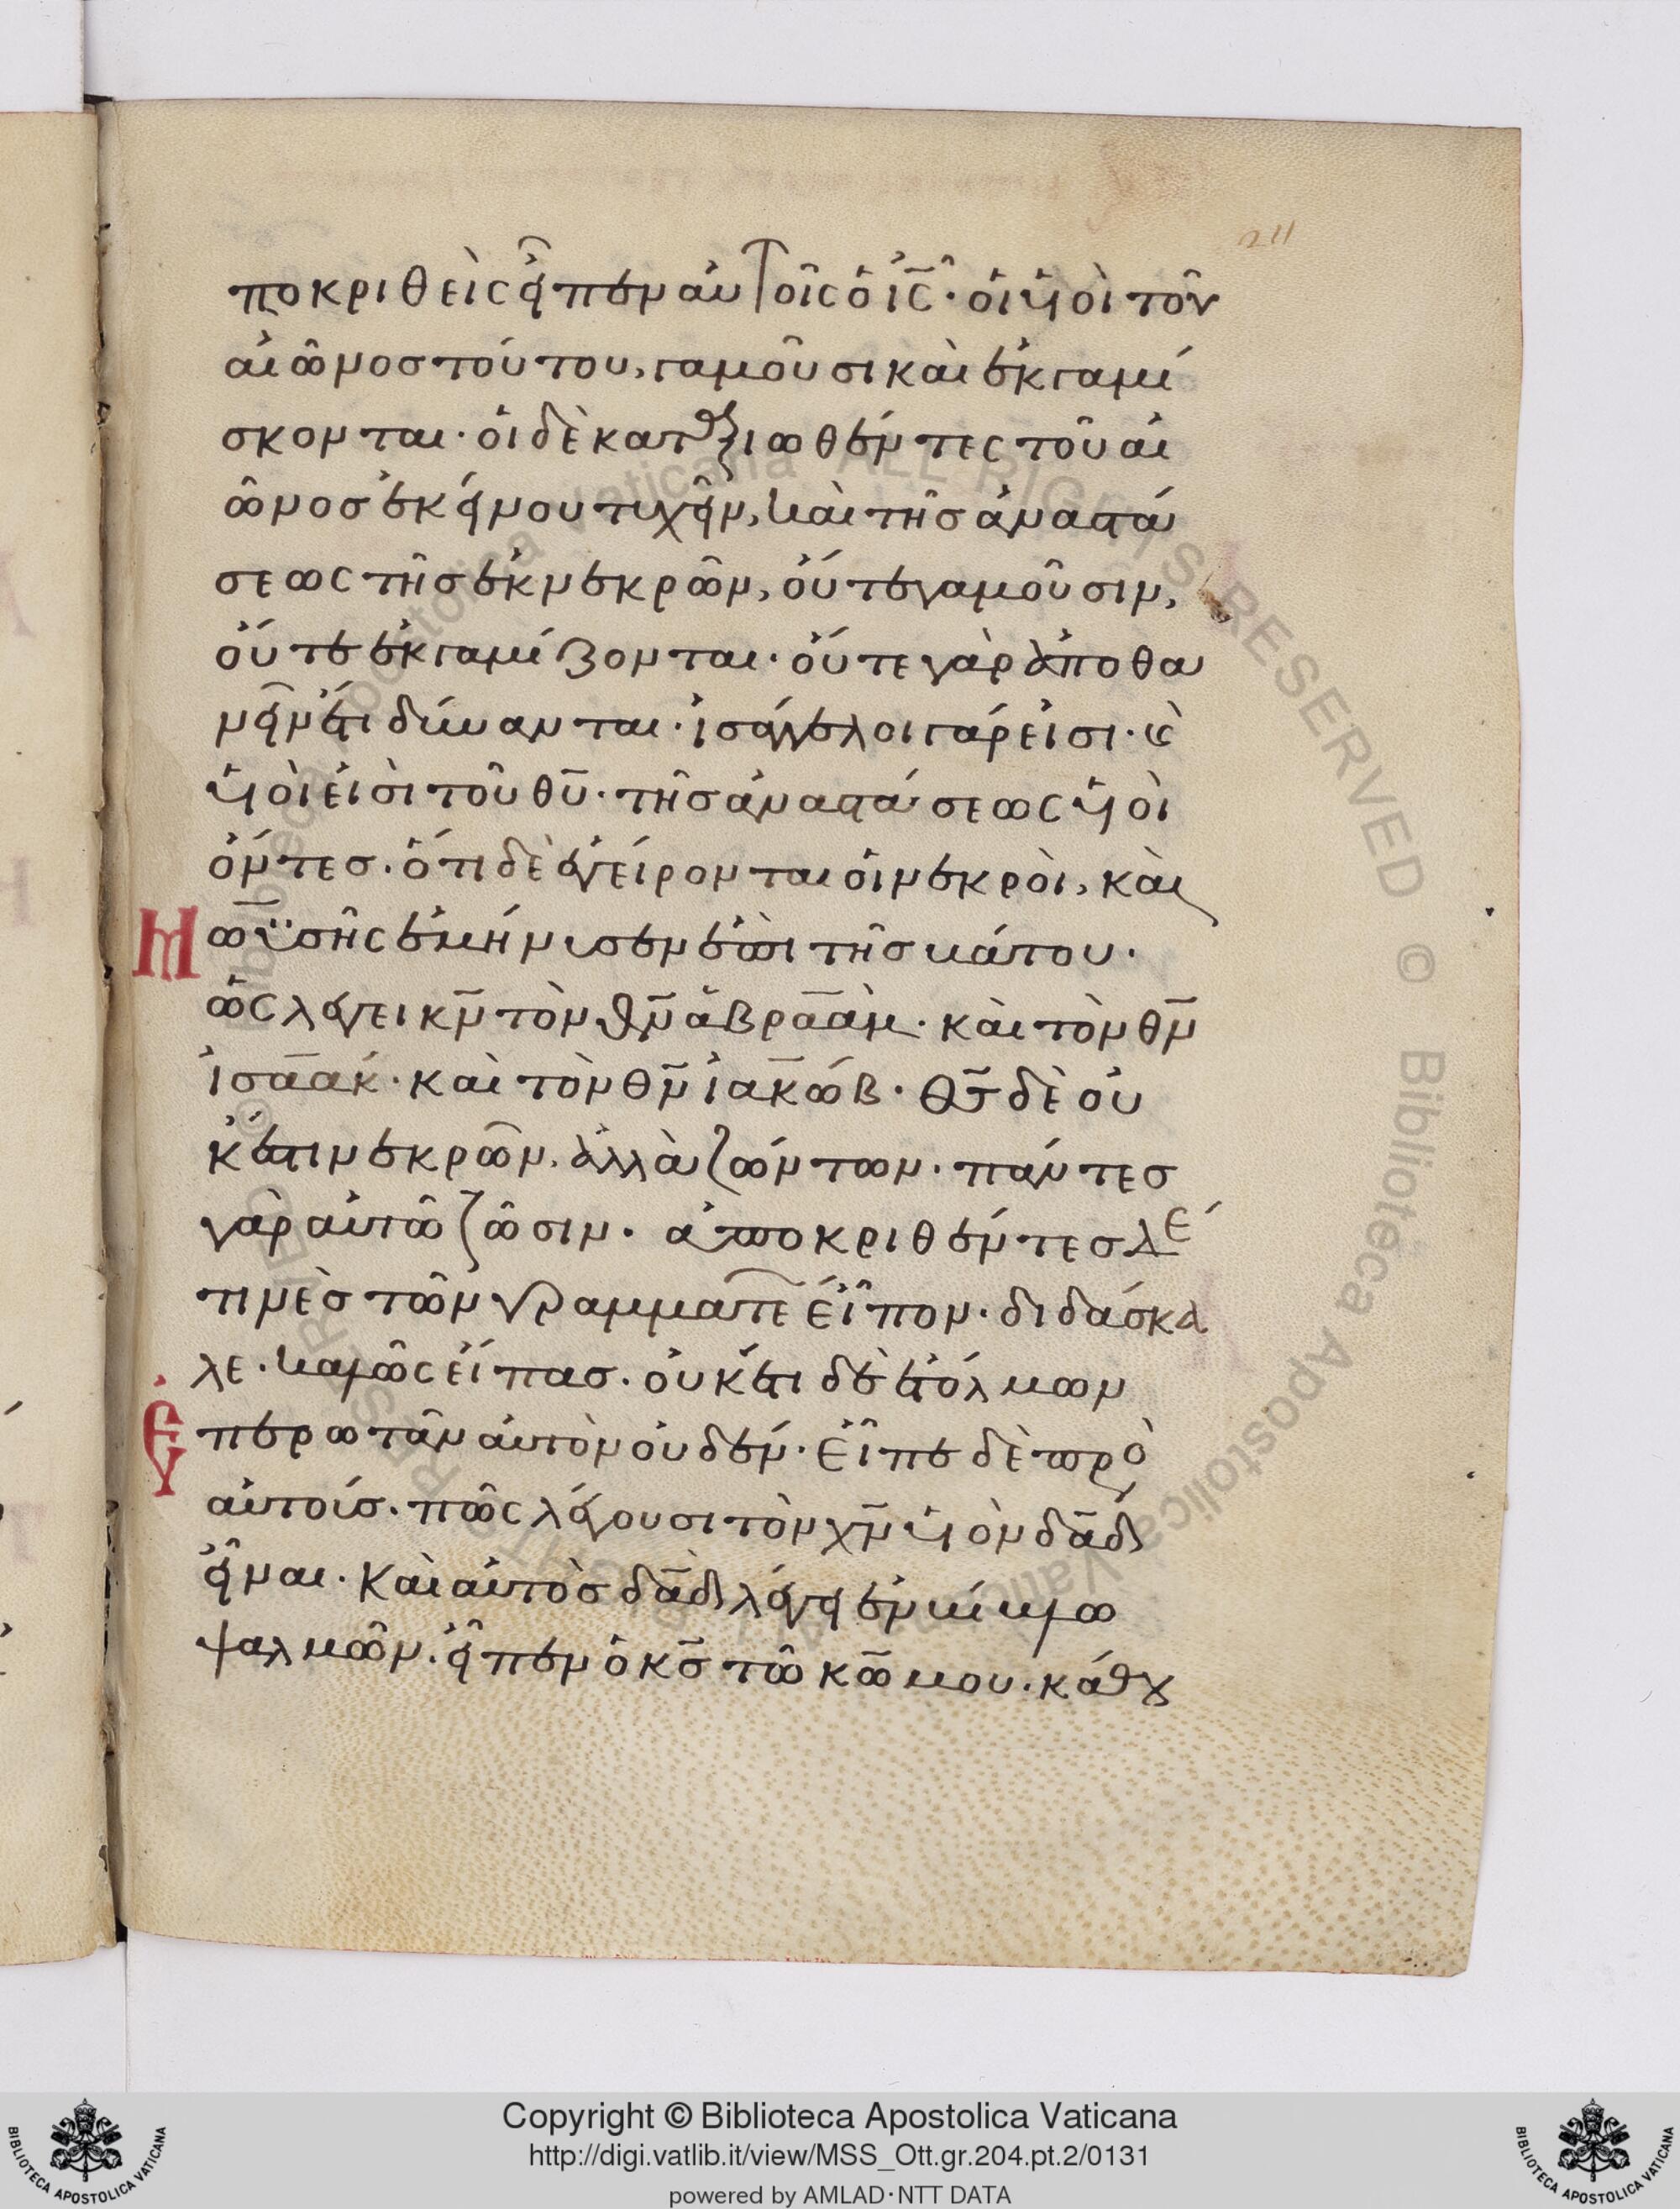 211
ποκριθεὶς εἶπεν αὐτοῖς ὁ ἰ̅ς̅· οἱ υἱοὶ τοῦ
αἰῶνοσ τούτου, γαμοῦσι καὶ ἐκγαμί
σκονται· οἱ δὲ καταξιωθέντες τοῦ αἰ
ῶνοσ ἐκείνου τυχεῖν, καὶ τῆσ ἀναστά
σεως τῆσ ἐκ νεκρῶν, οὔτε γαμοῦσιν,
οὔτε ἐκγαμίζονται· οὔτε γὰρ ἀποθα
νεῖν ἔτι δύνανται· ἰσάγγελοι γάρ εἰσι· ϗ̀
υἱοὶ εἰσὶ τοῦ θ̅υ̅· τῆσ ἀναστάσεως υἱοὶ
ὄντεσ. ὅτι δὲ ἐγείρονται οἱ νεκροὶ, καὶ
Μωϋσῆς ἐμήνυσεν ἐπὶ τῆσ βάτου·
ὡς λέγει κ̅ν̅ τὸν θ̅ν̅ ἀβραὰμ· καὶ τὸν θ̅ν̅
ἰσαάκ· καὶ τὸν θ̅ν̅ ἰακώβ· θ̅σ̅ δὲ οὐ
κ ἔστι νεκρῶν, ἀλλὰ ζώντων· πάντεσ
γὰρ αὐτῶ ζῶσιν· ἀποκριθέντεσ δέ
τινὲσ τῶν γραμματέ εἶπον· διδάσκα
λε· καλῶς εἶπασ· οὐκ ἔτι δὲ ἐτόλμων
Ἐπερωτᾶν αὐτὸν οὐδέν· εἶπε δὲ πρὸ
αὐτούσ· πῶς λέγουσι τὸν χ̅ν̅ υἱὸν δ̅α̅δ̅
εἶναι· καὶ αὐτὸσ δ̅α̅δ̅ λέγει ἐν βίβλω
ψαλμῶν· εἶπεν ὁ κ̅σ̅ τῶ κ̅ω̅ μου· κάθου
Copyright © Biblioteca Apostolica Vaticana
http://digi.vatlib.it/view/MSS_Ott.gr.204.pt.2/0131
powered by AMLAD·NTT DATA